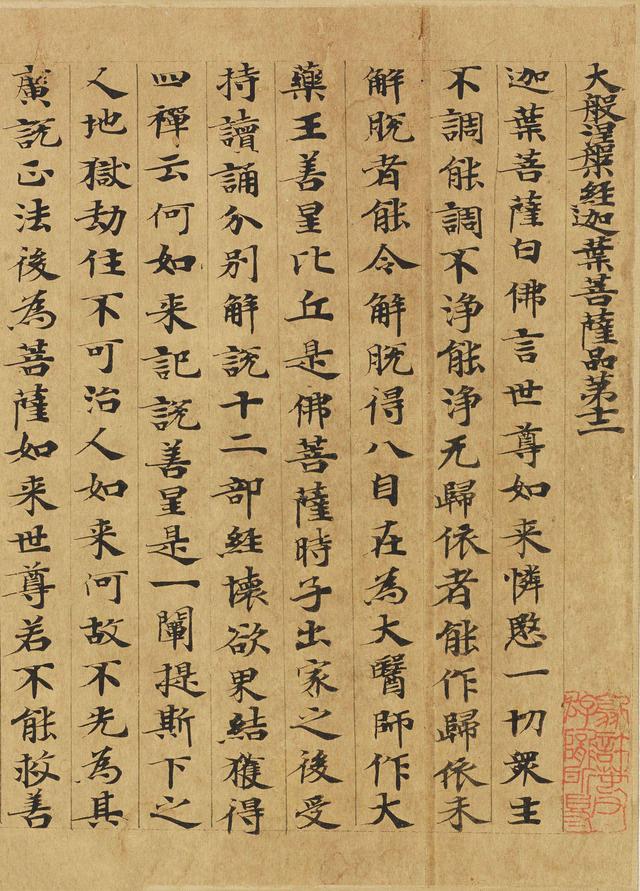 大般涅槃經迦葉菩薩品第十二
迦葉菩薩白佛言世尊如来憐愍一切眾生
不調能調不淨能淨无歸依者能作歸依未
解脫者能令解脫得八自在為大醫師作大
藥王善星比丘是佛菩薩時子出家之後受
持讀誦分別解說十二部經壞欲界結獲得
四禪云何如来記說善星是一闡提斯下之
人地獄劫住不可治人如来何故不先為其
廣說正法後為菩薩如来世尊若不能救善